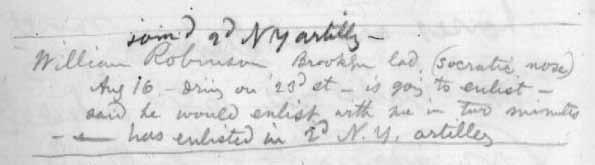 joined 2d N Y artillery —
William Robinson Brooklyn lad (Socratic nose)
Aug 16 – driv on 23d st – is going to enlist –
said he would enlist with me in two minutes
– – has enlisted in 2d N.Y. artillery